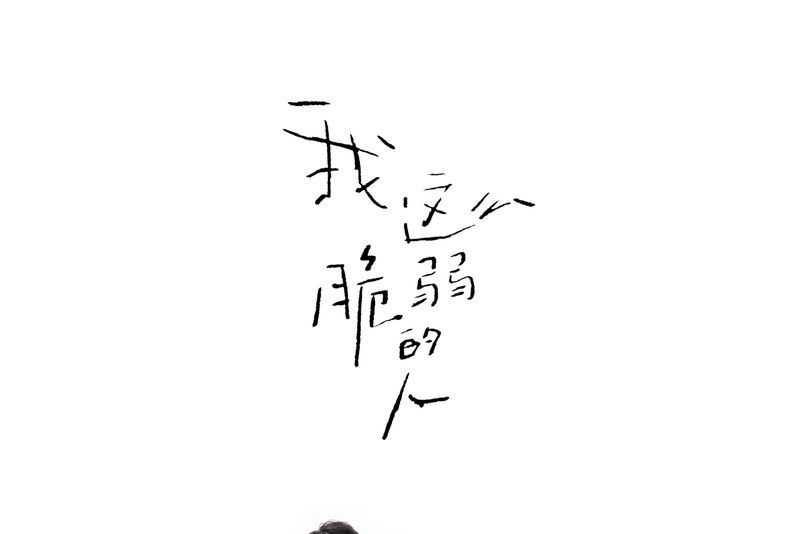 我这么
脆弱的
人